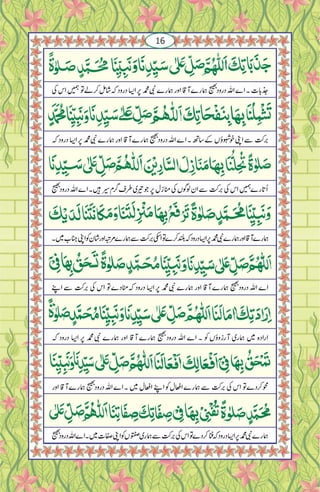 16
جَذَبَاتِكَ اَللّٰهُمَّ صَلِّ عَلٰى سَيِّدِنَا وَنَبِيِّنَا مُحَمَّدٍ صَلٰوةً
جذبات۔ اے اللہ درود بھیج ہمارے آقا اور ہمارے نبی محمد پر ایسا درود کہ شامل کرلے تو ہمیں اس کی
تَشْمِلُنَا بِهَا بِنَفَحَاتِكَ اَللّٰهُمَّ صَلِّ عَلٰى سَيِّدِنَا وَنَبِيِّنَا مُحَمَّدٍ
برکت سے اپنی خوشبوؤں کے ساتھ۔ اے اللہ درود بھیج ہمارے آقا اور ہمارے نبی محمد پر ایسا درود کہ
صَلٰوةً اَللّٰهُمَّ صَلِّ عَلٰى سَيِّدِنَا
اتارے ہمیں اس کی برکت سے ان لوگوں کی منازل پر جو تیری طرف گرم سیر ہیں۔ اے اللہ درود بھیج
وَنَبِيِّنَا مُحَمَّدٍ صَلٰوةً تَرْفَعُ بِهَا مَنْزِلَتَنَا وَمَكَانَتَنَا لَدَيْكَ
ہمارے آقا اور ہمارے نبی محمد پر ایسا درود کہ بلند کرے تو اسکی برکت سے ہمارے مرتبہ اور شان کو اپنی جناب میں۔
اَللّٰهُمَّ صَلِّ عَلٰى سَيِّدِنَا وَنَبِيِّنَا مُحَمَّدٍ صَلٰوةً تَمْحَقُ بِهَا فِيْ
اے اللہ درود بھیج ہمارے آقا اور ہمارے نبی محمد پر ایسا درود کہ مٹادے تو اس کی برکت سے اپنے
اِرَادَتِكَ اٰمَالَنَا اَللّٰهُمَّ صَلِّ عَلٰى سَيِّدِنَا وَنَبِيِّنَا مُحَمَّدٍ صَلٰوةً
ارادہ میں ہماری آرزوؤں کو۔ اے اللہ درود بھیج ہمارے آقا اور ہمارے نبی محمد پر ایسا درود کہ
تَمْحَقُ بِهَا فِيْ اَفْعَالِكَ اَفْعَالَنَا اَللّٰهُمَّ صَلِّ عَلٰى سَيِّدِنَا وَنَبِيِّنَا
محو کردے تو اس کی برکت سے ہمارے افعال کو اپنے افعال میں۔ اے اللہ درود بھیج ہمارے آقا اور
مُحَمَّدٍ صَلٰوةً تُفْنِيْ بِهَا فِيْ صِفَاتِكَ صِفَاتِنَا اَللّٰهُمَّ صَلِّ عَلٰى
ہمارے نبی محمد پر ایسا درود کہ فنا کردے تو اس کی برکت سے ہماری صفتوں کو اپنی صفات میں۔ اے اللہ درود بھیج